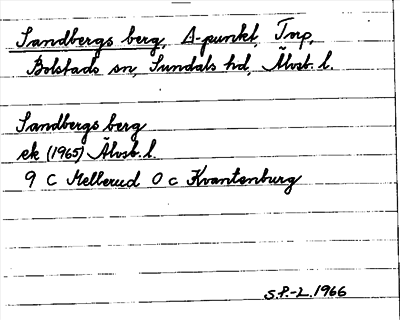 Sandbergs berg, Δ-punkt, Tnp,
Bolstads sn, Sundals hd, Älvsb. l.
Sandbergs berg
ek (1965) Älvsb. l.
9 C Mellerud 0 c Kvantenburg
S.P.-L. 1966